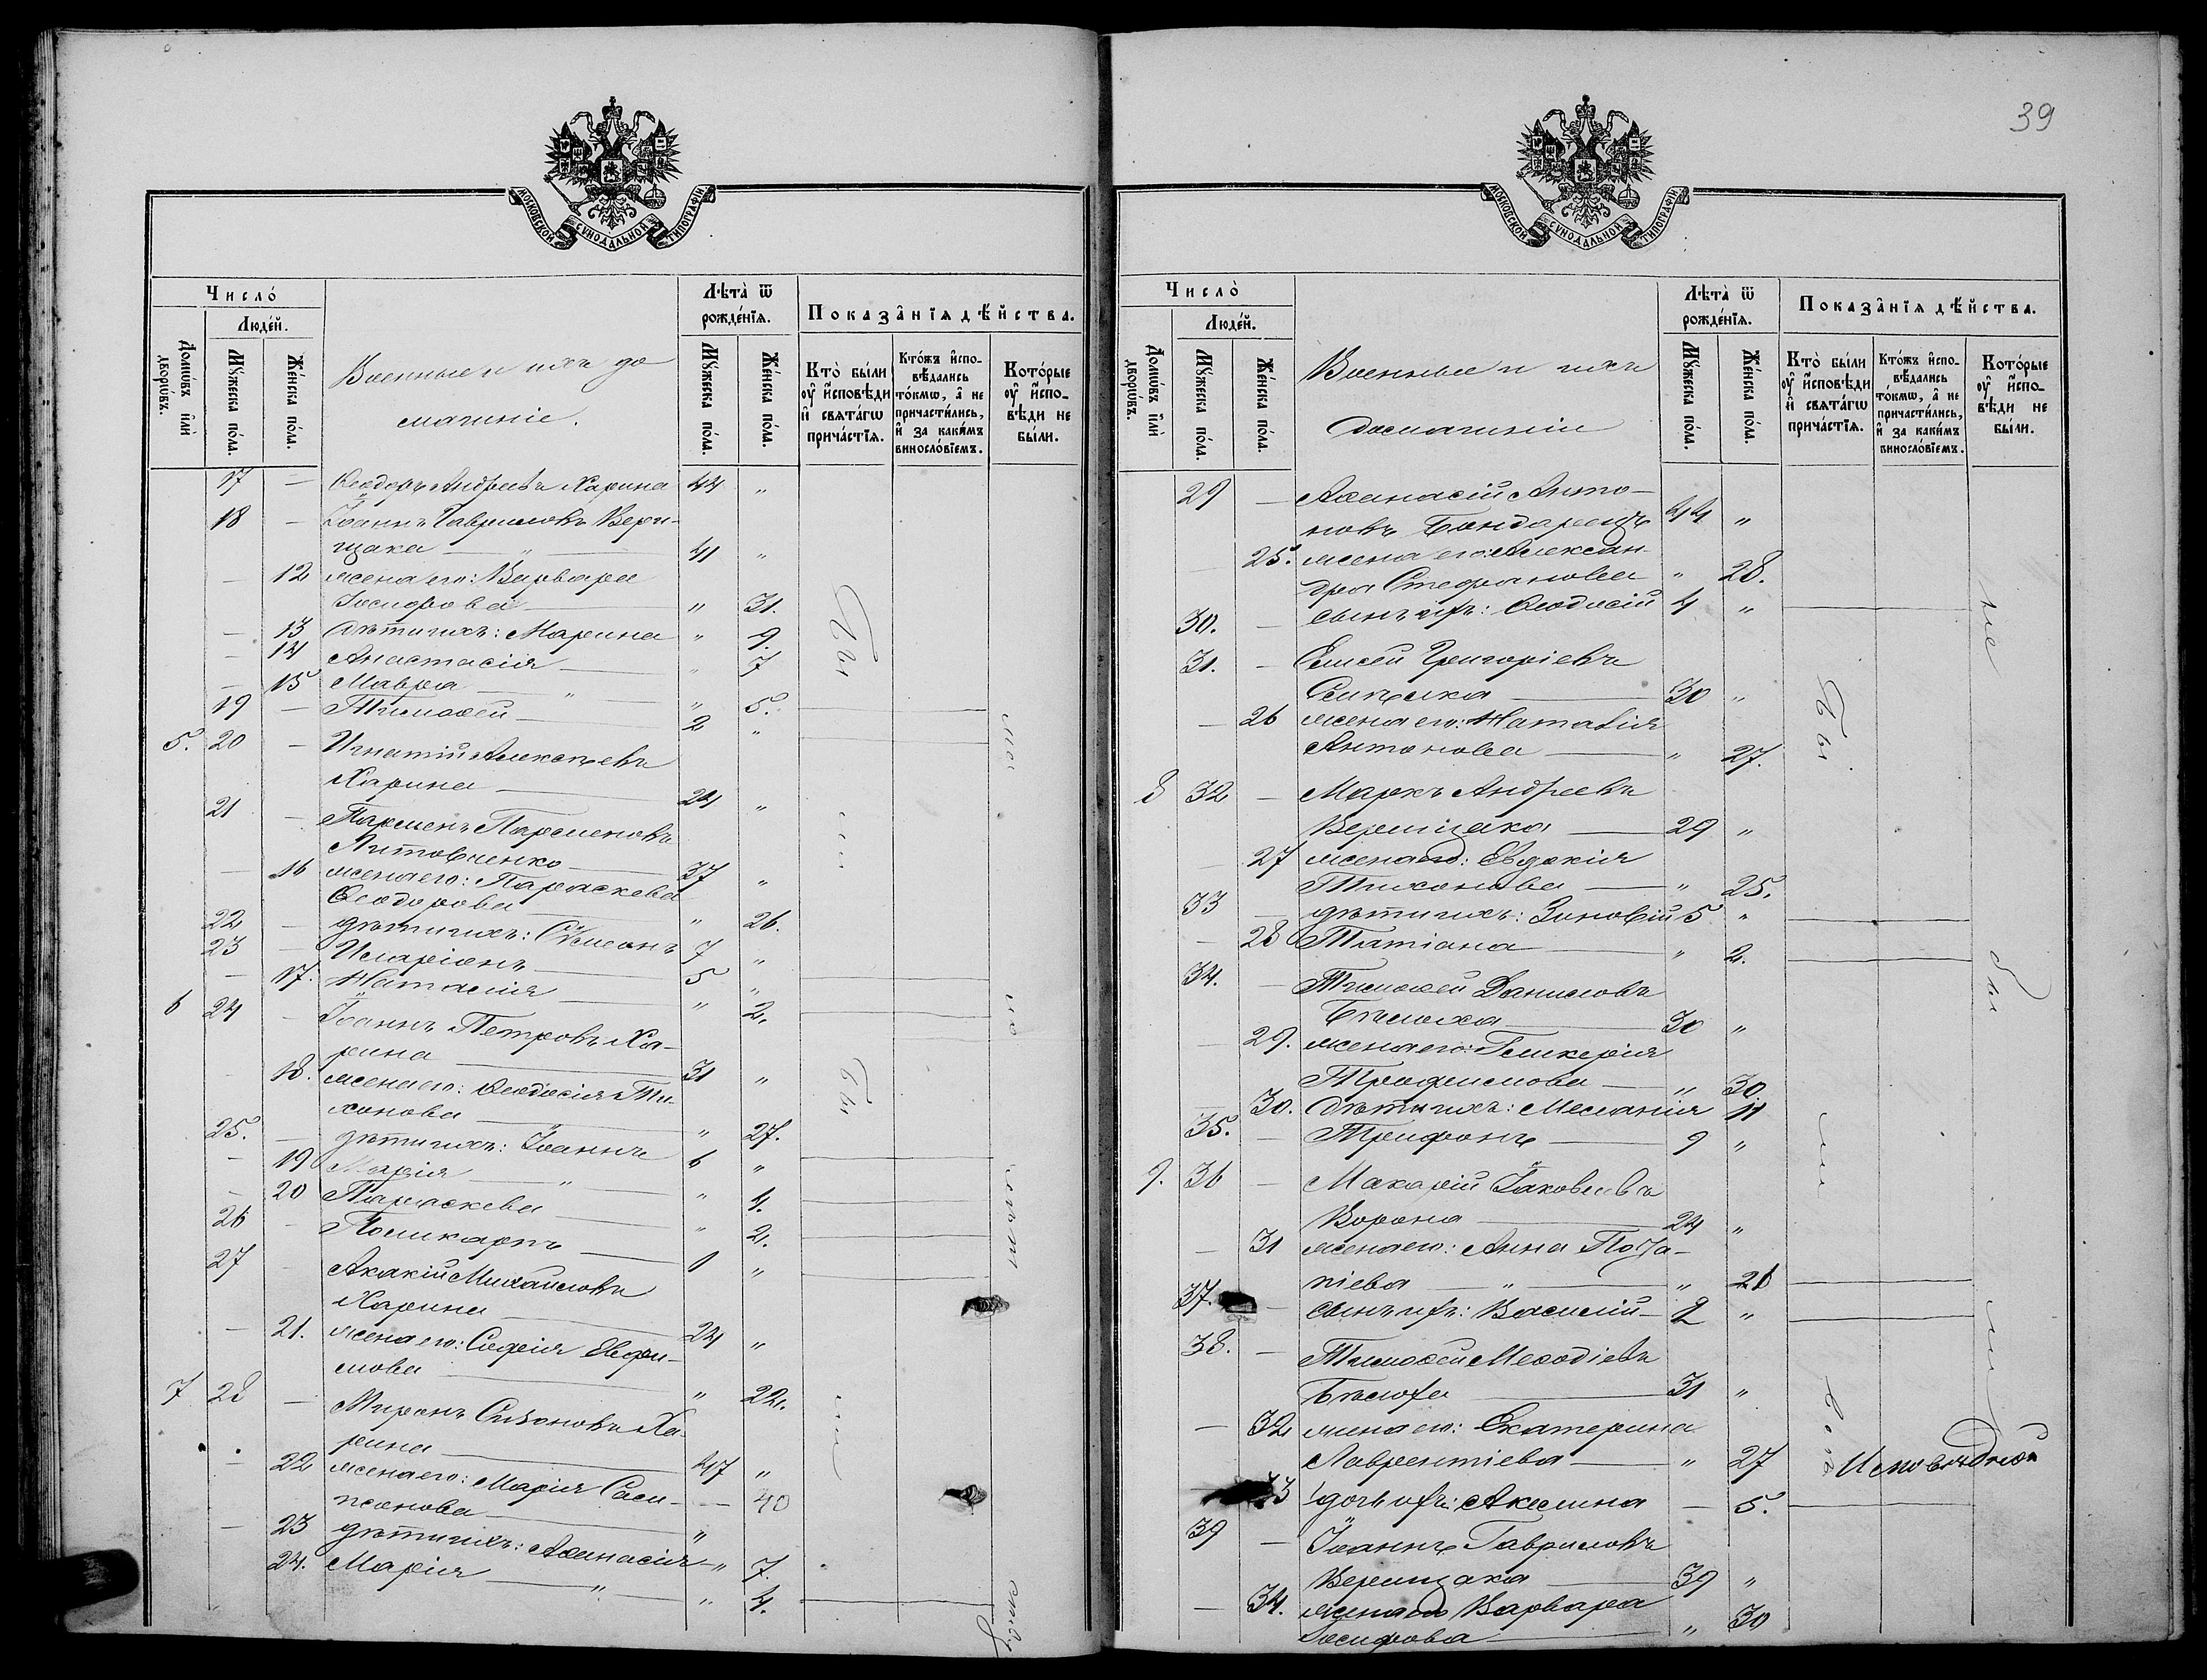 39
МОСКОВСКОЙ СѴНОДАЛЬНОЙ ТИПОГРАФІИ
Число́
Людéй.
Домѡ́въ и҆лѝ дворѡ́въ.
Мꙋ́жеска по́ла.
Же́нска по́ла.
Военные и ихъ до
машніе.
Лѣ́та ѿ рожде́нїѧ.
Мꙋ́жеска по́ла.
Же́нска по́ла.
Показа̑нїѧ дѣ́йства.
Кто̀ бы́ли ᲂу҆ и҆́сповѣди и҆ свѧта́гѡ прича́стїѧ.
Кто́жъ и҆спо-вѣ́дались то́кмѡ, а҆ не причасти́лись, и҆ за каки́мъ виносло́вїемъ.
Кото́рые ᲂу҆ и҆́спо-вѣди не бы́ли.
17 — Ѳеодоръ Андреевъ Харина 44 „
18 — Іоаннъ Гавриловъ Вери-
щака — „ — 41 „
— 12 жена его: Варвара
Іосифова — „ 31.
— 13 дѣти ихъ: Марина „ 9.
— 14 Анастасія — „ 7
— 15 Мавра — „ — „ 5.
19 — Тимоѳей — 2 „
5. 20 — Игнатій Алексѣевъ
Харина — 24 „
21 — Парменъ Парменовъ
Литовченко — 37 „
— 16 жена его: Параскева
Ѳеодорова — „ 26.
22 — дѣти ихъ: Сѵмеонъ 7 „
23 — Иларіонъ — 5 „
— 17. Наталія — „ 2.
6 24 — Іоаннъ Петровъ Ха-
рина — 31 „
— 18. жена его: Ѳеодосія Ти-
хонова — „ 27.
25. — дѣти ихъ: Іоаннъ 6 „
— 19 Марія — „ — „ 4.
— 20 Параскева — „ 2.
26 — Поликарпъ — 1 „
27 — Акакій Михайловъ
Харина — 24 „
— 21. жена его: Софія Евфи-
мова — „ 22.
7 28 — Миронъ Сизоновъ Ха-
рина — 47 „
— 22 жена его: Марія Сам-
псонова — „ — 40
— 23 дѣти ихъ: Аѳанасія „ 7.
— 24. Марія — „ — „ 4.
Бы
ли
Бы
ли
МОСКОВСКОЙ СѴНОДАЛЬНОЙ ТИПОГРАФІИ
Число̀
Людéй.
Домѡ́въ и҆лѝ дворѡ́въ.
Мꙋ́жеска по́ла.
Же́нска по́ла.
Военные и ихъ
домашніи
Лѣ́та ѿ рожде́нїѧ.
Мꙋ́жеска по́ла.
Же́нска по́ла.
Показа̑нїѧ дѣ́йства.
Кто̀ бы́ли ᲂу҆ и҆́сповѣди и҆ свѧта́гѡ прича́стїѧ.
Кто́жъ и҆спо-вѣ́дались то́кмѡ, а҆ не причасти́лись, и҆ за каки́мъ виносло́вїемъ.
Кото́рые ᲂу҆ и҆́спо-вѣди не бы́ли.
29 — Аѳанасій Анто-
новъ Бондарецъ 44 „
— 25. жена его: Алексан-
дра Стефанова „ 28.
30. — сынъ ихъ: Ѳеодосій 4 „
31. — Елисей Григоріевъ
30 „
— 26 жена его: Наталія
Антонова — „ 27.
8 32 — Маркъ Андреевъ
Верищака — 29 „
— 27 жена его: Евдокія
Тихонова — „ 25.
33 — дѣти ихъ: Зиновій 5 „
— 28 Татіана — „ 2.
34. — Тимоѳей Даниловъ
Бѣлоха — 30 „
— 29. жена его: Гликерія
Трофимова — „ 30
— 30. дѣти ихъ: Меланія 11
35. — Трифонъ — 9 „
9. 36 — Макарій Іаковлевъ
Ворона — 24 „
— 31 жена его: Анна Пота-
піева — „ — „ 21
37. — сынъ ихъ: Василій — 2 „
38. — Тимоѳей Меѳодіевъ
Бѣлоха — 31 „
— 32 жена его: Екатерина
Лаврентіева — „ 27
33 дочь ихъ: Акилина — 5.
39 — Іоаннъ Гавриловъ
Верищака — 39 „
— 34. жена его Варвара
Іосифова — „ 30
Бы
ли
не
бы
ли